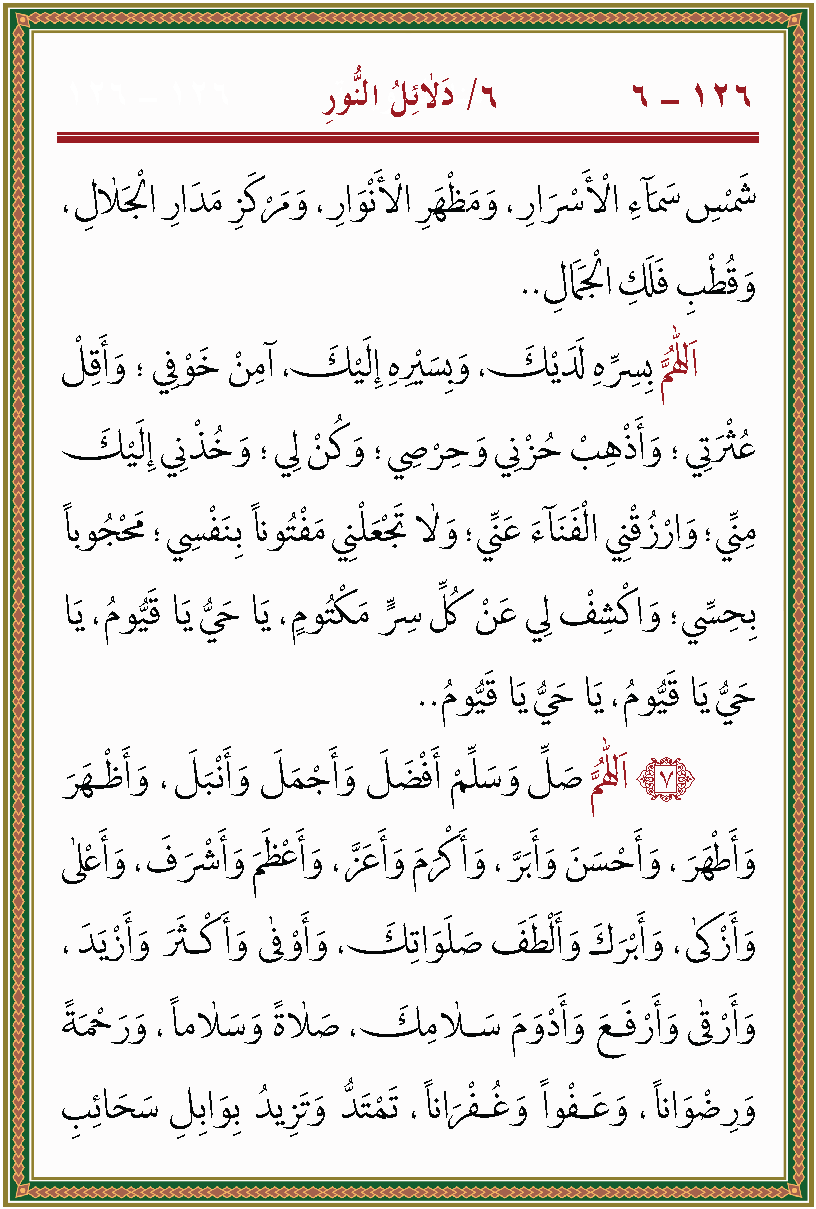 ١٢٦ – ٦ ٦/ دَلَائِلُ النُّورِ
شَمْسِ سَمَآءِ الْأَسْرَارِ، وَمَظْهَرِ الْأَنْوَارِ، وَمَرْكَزِ مَدَارِ الْجَلَالِ،
وَقُطْبِ فَلَكِ الْجَمَالِ..
اَللّٰهُمَّ بِسِرِّهِ لَدَيْكَ، وَبِسَيْرِهِ إِلَيْكَ، آمِنْ خَوْفِي؛ وَأَقِلْ
عُثْرَتِي؛ وَأَذْهِبْ حُزْنِي وَحِرْصِي؛ وَكُنْ لِي؛ وَخُذْنِي إِلَيْكَ
مِنِّي؛ وَارْزُقْنِي الْفَنَآءَ عَنِّي؛ وَلَا تَجْعَلْنِي مَفْتُوناً بِنَفْسِي؛ مَحْجُوباً
بِحِسِّي؛ وَاكْشِفْ لِي عَنْ كُلِّ سِرٍّ مَكْتُومٍ، يَا حَيُّ يَا قَيُّومُ، يَا
حَيُّ يَا قَيُّومُ، يَا حَيُّ يَا قَيُّومُ..
٧ اَللّٰهُمَّ صَلِّ وَسَلِّمْ أَفْضَلَ وَأَجْمَلَ وَأَنْبَلَ، وَأَظْهَرَ
وَأَطْهَرَ، وَأَحْسَنَ وَأَبَرَّ، وَأَكْرمَ وَأَعَزَّ، وَأَعْظَمَ وَأَشْرَفَ، وَأَعْلٰى
وَأَزْكٰى، وَأَبْرَكَ وَأَلْطَفَ صَلَوَاتِكَ، وَأَوْفٰى وَأَكْثَرَ وَأَزْيَدَ،
وَأَرْقٰى وَأَرْفَعَ وَأَدْوَمَ سَلَامِكَ، صَلَاةً وَسَلَاماً، وَرَحْمَةً
وَرِضْوَاناً، وَعَفْواً وَغُفْرَاناً، تَمْتَدُّ وَتَزِيدُ بِوَابِلِ سَحَائِبِ